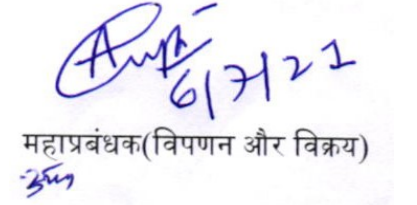 6/7/21
महाप्रबंधक(विपणन और विक्रय)